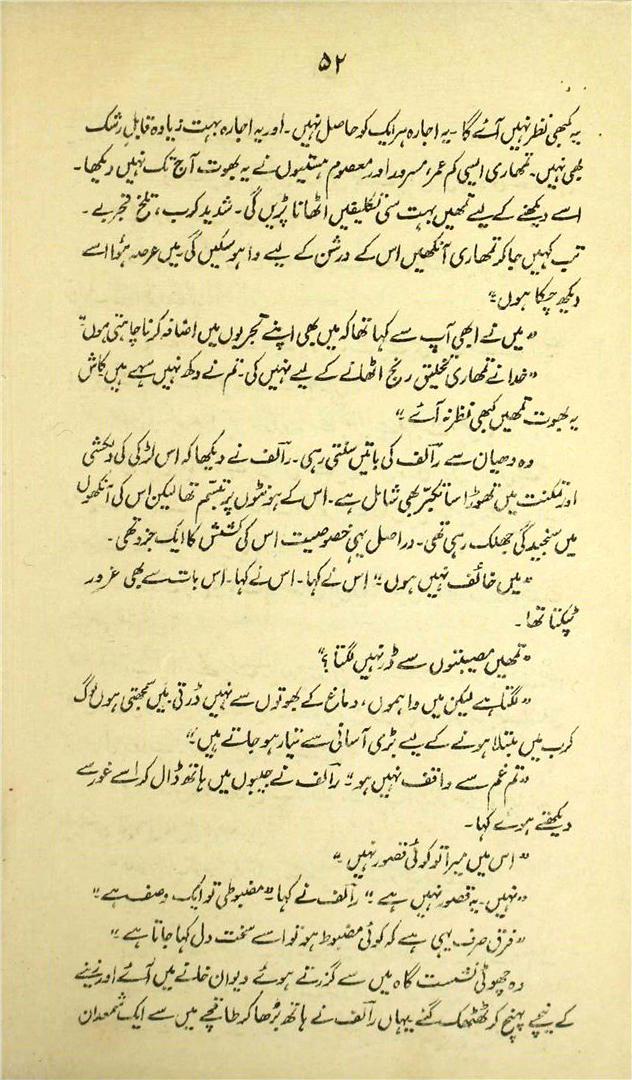 ۵۲
یہ کبھی نظر نہیں آئے گا ۔ یہ اجارہ ہر ایک کو حاصل نہیں ۔ اور یہ اجارہ بہت زیادہ قابلِ رشک
بھی نہیں ۔ تمھاری ایسی کم عمر، مسرور اور معصوم ہستیوں نے یہ بھوت، آج تک نہیں دیکھا ۔
اسے دیکھنے کے لیے تمھیں بہت سی تکلیفیں اٹھانا پڑیں گی ۔ شدید کرب ، تلخ تجربے ۔
تب کہیں جا کر تمھاری آنکھیں اس کے درشن کے لیے وا ہو سکیں گی ۔ میں عرصہ ہوا اسے
دیکھ چکا ہوں ۔"
"میں نے ابھی آپ سے کہا تھا کہ میں بھی اپنے تجربوں میں اضافہ کرنا چاہتی ہوں"
"خدا نے تمھاری تخلیق رنج اٹھانے کے لیے نہیں کی ۔ تم نے دکھ نہیں سہے ہیں کاش
یہ بھوت تمھیں کبھی نظر نہ آئے ۔"
وہ دھیان سے رالف کی باتیں سنتی رہی ۔ رالف نے دیکھا کہ اس لڑکی کی دلکشی
اور تمکنت میں تھوڑا سا تکبر بھی شامل ہے ۔ اس کے ہونٹوں پر تبسّم تھا لیکن اس کی آنکھوں
میں سنجیدگی جھلک رہی تھی ۔ دراصل یہی خصوصیت اس کی کشش کا ایک جزو تھی ۔
"میں خائف نہیں ہوں ۔" اس نے کہا ۔ اس نے کہا ۔ اس بات سے بھی غرور
ٹپکتا تھا ۔
"تمھیں مصیبتوں سے ڈر نہیں لگتا ؟"
"لگتا ہے لیکن میں واہموں ، دماغ کے بھوتوں سے نہیں ڈرتی ۔ میں سمجھتی ہوں لوگ
کرب میں مبتلا ہونے کے لیے بڑی آسانی سے تیار ہو جاتے ہیں ۔"
"تم غم سے واقف نہیں ہو ۔" رالف نے جیبوں میں ہاتھ ڈال کر اسے غور سے
دیکھتے ہوئے کہا ۔
"اس میں میرا تو کوئی قصور نہیں ۔"
"نہیں ۔ یہ قصور نہیں ہے ۔" رالف نے کہا ۔ "مضبوطی تو ایک وصف ہے ۔"
"فرق صرف یہی ہے کہ کوئی مضبوط ہو تو اسے سخت دل کہا جاتا ہے ۔"
وہ چھوٹی نشست گاہ میں سے گزرتے ہوئے دیوان خانے میں آئے اور زینے
کے نیچے پہنچ کر ٹھٹھک گئے یہاں رالف نے ہاتھ بڑھا کر طاقچے میں سے ایک شمعدان